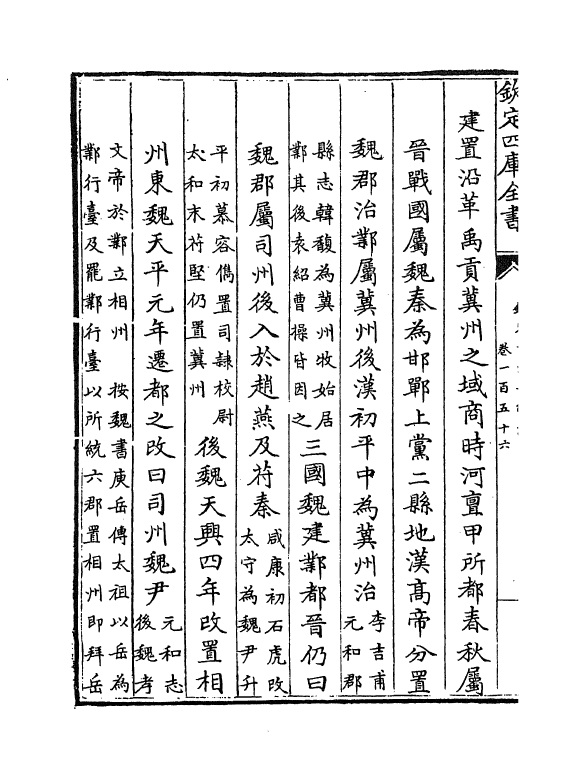 欽定四庫全書
卷一百五十六
建置沿革禹貢冀州之域商時河亶甲所都春秋屬
晉戰國屬魏秦為邯鄲上黨二縣地漢髙帝分置
魏郡治鄴屬冀州後漢初平中為冀州治
李吉甫
元和郡
縣志韓馥為冀州牧始居
鄴其後袁紹曹操皆因之
三國魏建鄴都晉仍曰
魏郡屬司州後入於趙燕及苻秦
咸康初石虎改
太守為魏尹升
平初慕容儁置司隷校尉
太和末苻堅仍置冀州
後魏天興四年改置相
州東魏天平元年遷都之改曰司州魏尹
元和志
後魏孝
文帝於鄴立相州 按魏書庾岳傳太祖以岳為
鄴行臺及罷鄴行臺以所統六郡置相州即拜岳